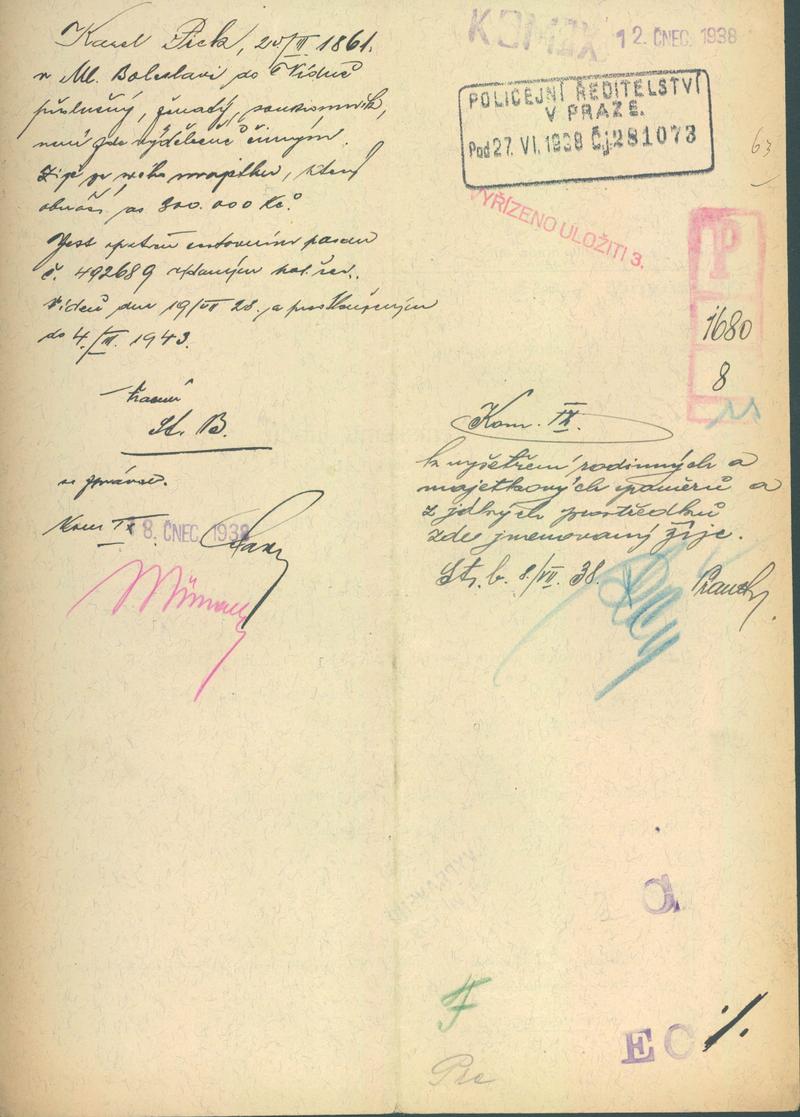 Karel Pick, 20/III 1861.
v Ml. Boleslavi do Vídně
příslušný, ženatý, soukromník,
není zde výdělečně činným.
Žije ze svého majetku, který
obnáší as 300.000 Kč.
Jest opatřen cestovním pasem
č. 492689 vydaným pol. řed.
Vídeň dne 19/VII 28. a prodlouženým
do 4./III. 1943.
St. B.
se zprávou.
Kom IX 8. ČNEC. 1938
KOM IX 12. ČNEC. 1938
POLICEJNÍ ŘEDITELSTVÍ
V PRAZE.
Pod 27. VI. 1938 Čj 281073
63
VYŘÍZENO ULOŽITI 3.
P
1680
8
Kom. IX.
k vyšetření rodinných a
majetkových poměrů a
z jakých prostředků
zde jmenovaný žije.
St. b. 8./VII. 38.
C
EC ./.